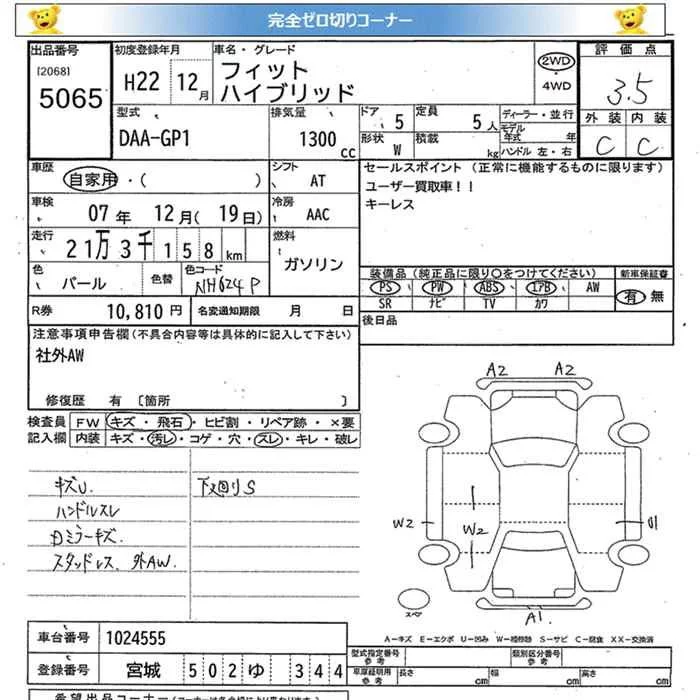 完全ゼロ切りコーナー
出品番号
[2068]
5065
初度登録年月
H22 12月
車名・グレード
フィット
ハイブリッド
2WD
・
4WD
評価点
3.5
外装 内装
C C
型式
DAA-GP1
排気量
1300 cc
ドア 5
形状 W
定員 5人
積載 kg
ディーラー・並行
モデル年式 年
ハンドル 左・右
車歴
自家用・( )
シフト AT
車検
07年 12月( 19日)
冷房 AAC
走行
21万3千158km
燃料
ガソリン
色 パール
色替
色コード
NH624P
R券 10,810円
名変通知期限 月 日
セールスポイント(正常に機能するものに限ります)
ユーザー買取車!!
キーレス
装備品(純正品に限り○をつけてください)
PS PW ABS エアB AW
SR ナビ TV カワ
新車保証書
有 無
後日品
注意事項申告欄(不具合内容等は具体的に記入して下さい)
社外AW
修復歴 有 〔箇所 〕
検査員
記入欄
FW キズ・飛石・ヒビ割・リペア跡・×要
内装 キズ・汚レ・コゲ・穴・スレ・キレ・破レ
キズU.
ハンドルスレ
Dミラーキズ.
スタッドレス、外AW.
下廻りS
A2 A2
W2
W2
A1
スペア
A－キズ E－エクボ U－凹み W－補修跡 S－サビ C－腐食 XX－交換済
車台番号 1024555
登録番号 宮城 502 ゆ 344
型式指定番号
参考
類別区分番号
参考
車庫証明用
参考
長さ cm 幅 cm 高さ cm
希望出品コーナー